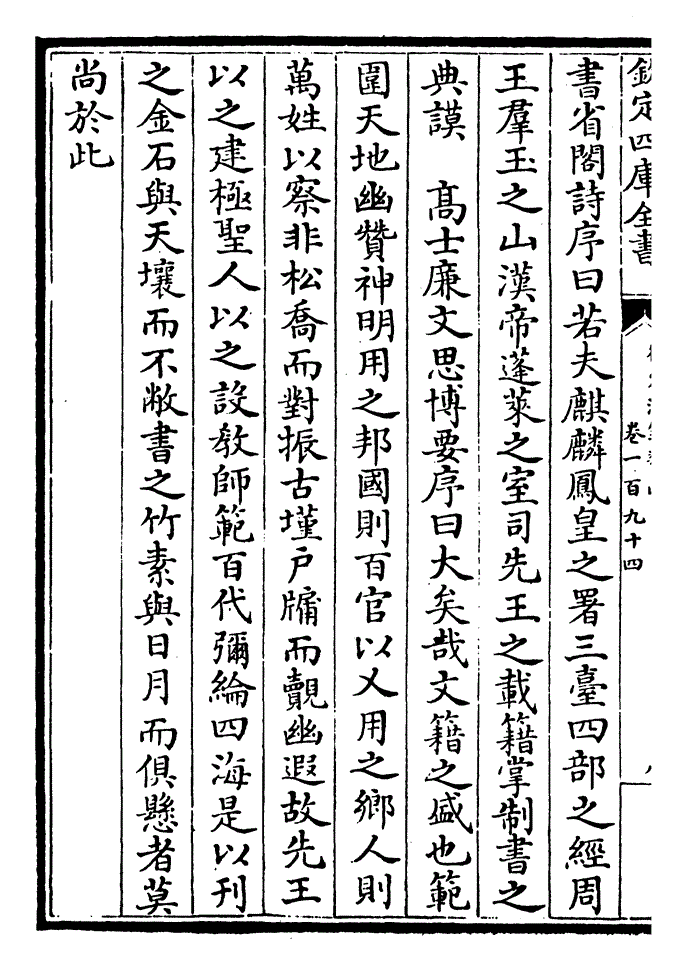 欽定四庫全書
卷一百九十四
書省閣詩序曰若夫麒麟鳳皇之署三臺四部之經周
王羣玉之山漢帝蓬萊之室司先王之載籍掌制書之
典謨　髙士廉文思博要序曰大矣哉文籍之盛也範
圍天地幽贊神明用之邦國則百官以乂用之鄉人則
萬姓以察非松喬而對振古墐户牖而覿幽遐故先王
以之建極聖人以之設教師範百代彌綸四海是以刊
之金石與天壤而不敝書之竹素與日月而俱懸者莫
尚於此